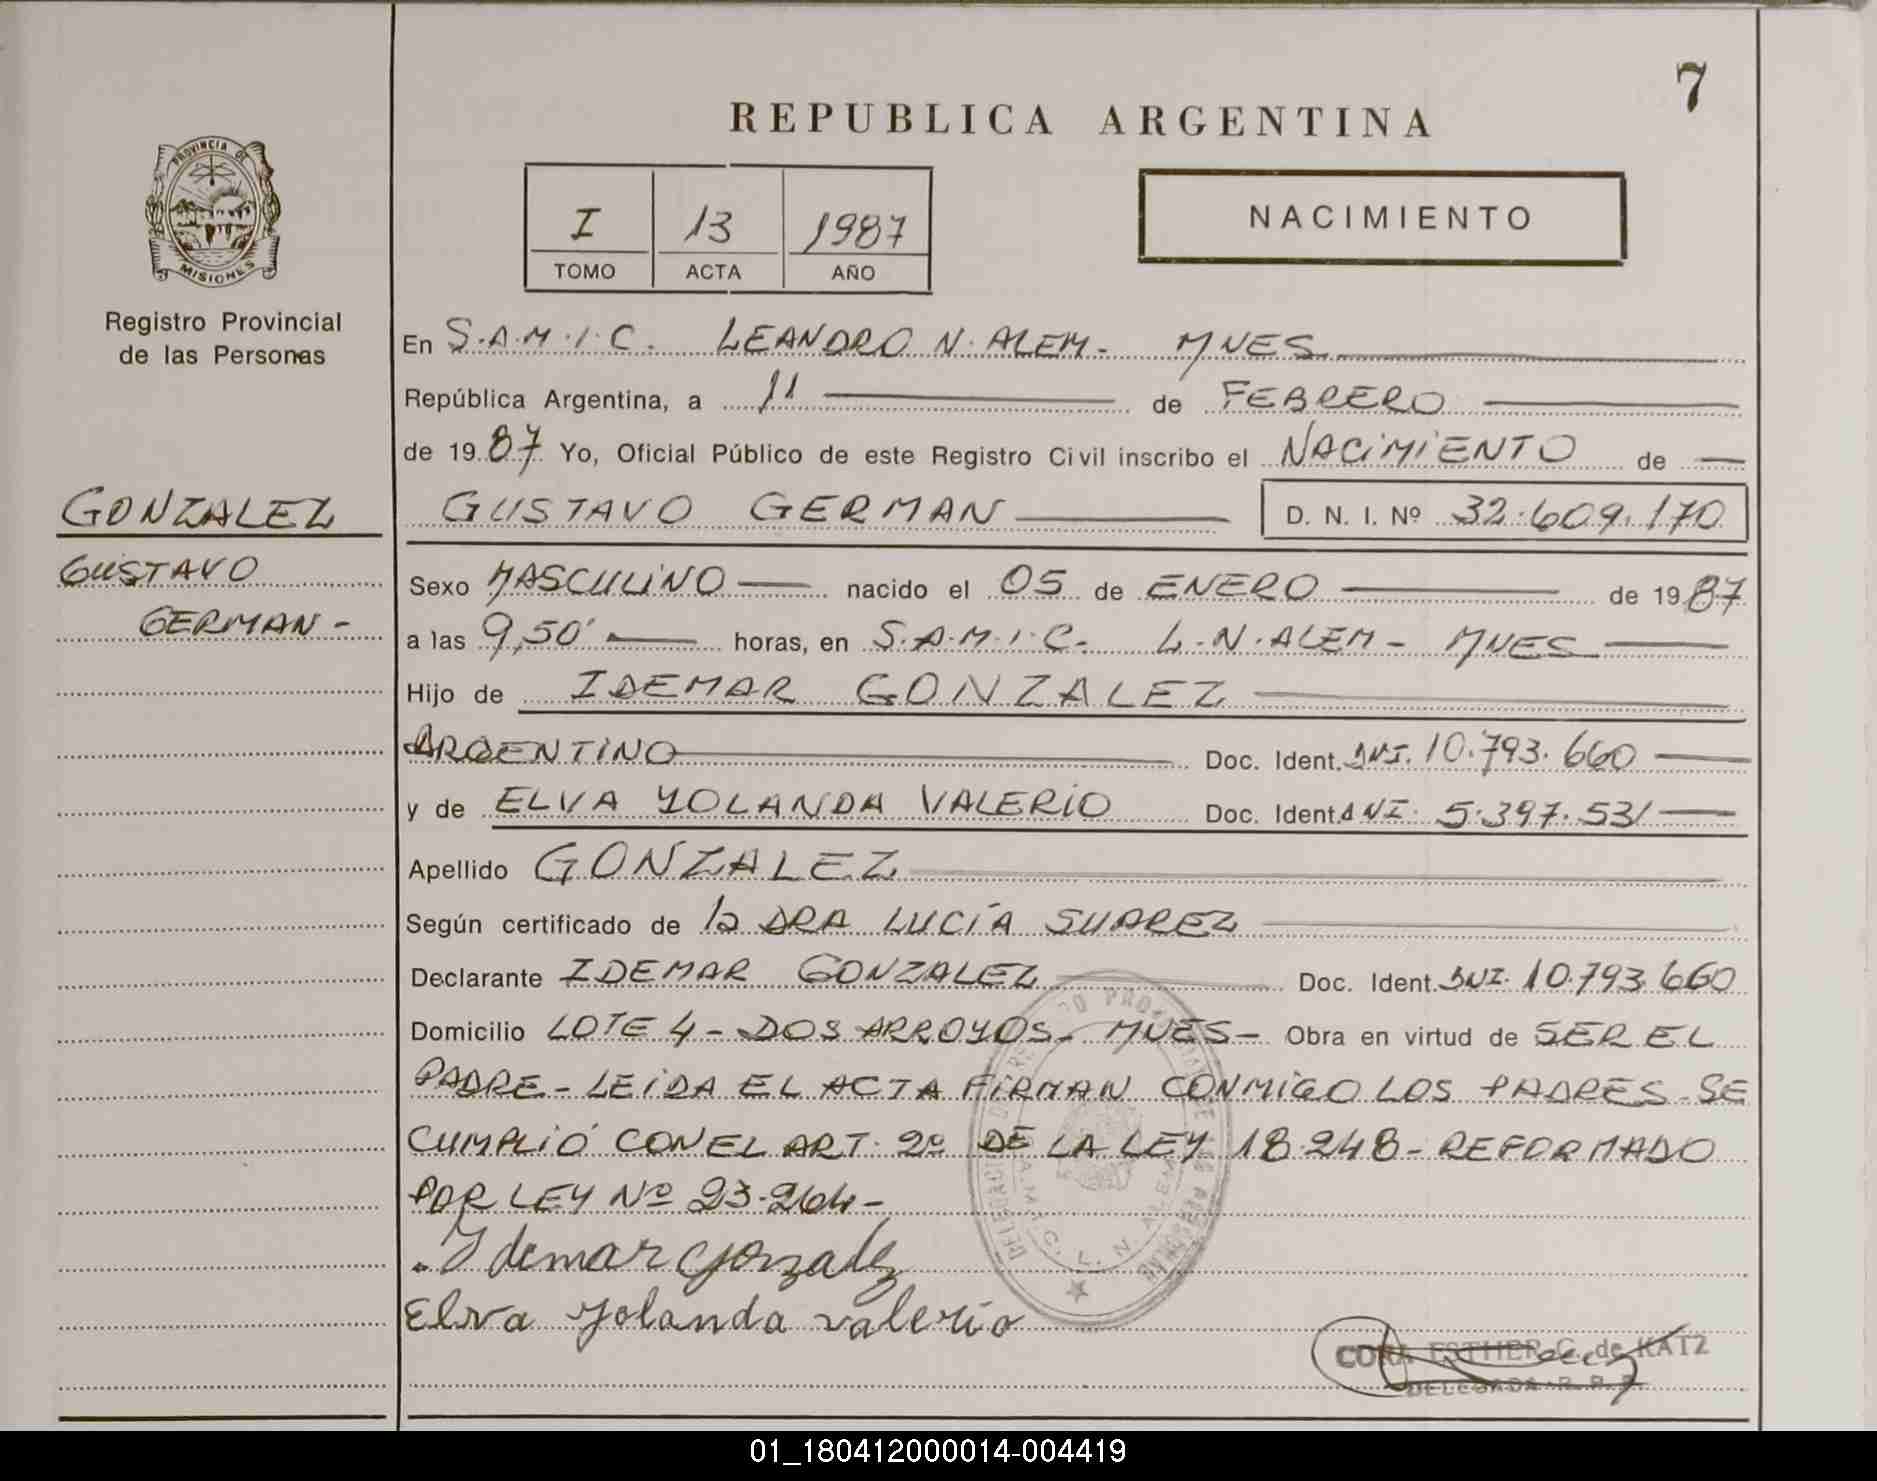 7
REPUBLICA ARGENTINA
PROVINCIA DE
MISIONES
Registro Provincial
de las Personas
I 13 1987
TOMO ACTA AÑO
NACIMIENTO
En S.A.M.I.C. LEANDRO N. ALEM- MNES
República Argentina, a 11 de FEBRERO
de 1987 Yo, Oficial Público de este Registro Civil inscribo el NACIMIENTO de
GONZALEZ
GUSTAVO
GERMAN-
GUSTAVO GERMAN D. N. I. Nº 32.609.170
Sexo MASCULINO nacido el 05 de ENERO de 1987
a las 9,50' horas, en S.A.M.I.C. L.N.ALEM- MNES
Hijo de IDEMAR GONZALEZ
ARGENTINO Doc. Ident. DNI. 10.793.660
y de ELVA YOLANDA VALERIO Doc. Ident. DNI. 5.397.531
Apellido GONZALEZ
Según certificado de la DRA LUCÍA SUAREZ
Declarante IDEMAR GONZALEZ Doc. Ident. DNI. 10.793.660
Domicilio LOTE 4- DOS ARROYOS- MNES- Obra en virtud de SER EL
PADRE- LEIDA EL ACTA FIRMAN CONMIGO LOS PADRES-SE
CUMPLIÓ CON EL ART. 2º DE LA LEY 18.248- REFORMADO
POR LEY Nº 23.264-
Idemar Gonzalez
Elva Yolanda Valerio
CORA ESTHER C. de KATZ
DELEGADA R. P. P.
01_180412000014-004419